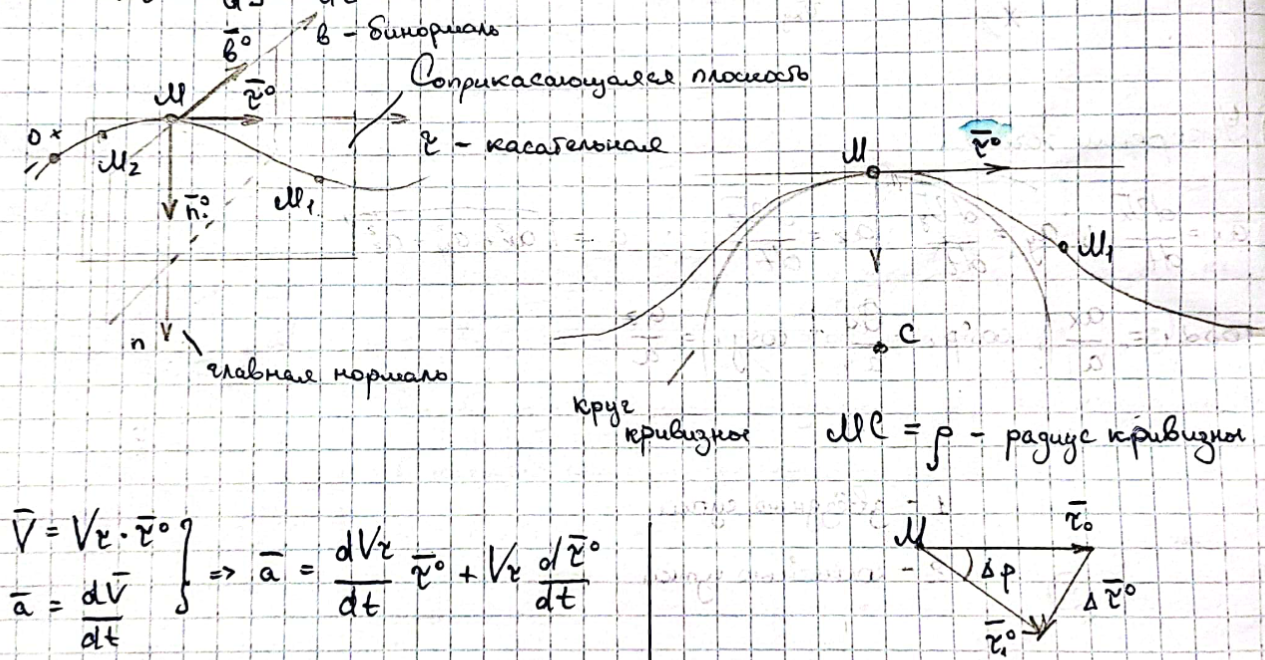 b – бинормаль
b̄°
τ̄°
Соприкасающаяся плоскость
M
O
M₂
τ – касательная
n̄°
M₁
n
главная нормаль
M
τ̄°
M₁
C
круг
кривизны
MC = ρ – радиус кривизны
V̄ = Vτ · τ̄°
ā = dV̄/dt
} => ā = dVτ/dt τ̄° + Vτ dτ̄°/dt
M
τ̄°
Δφ
Δτ̄°
τ̄₁°